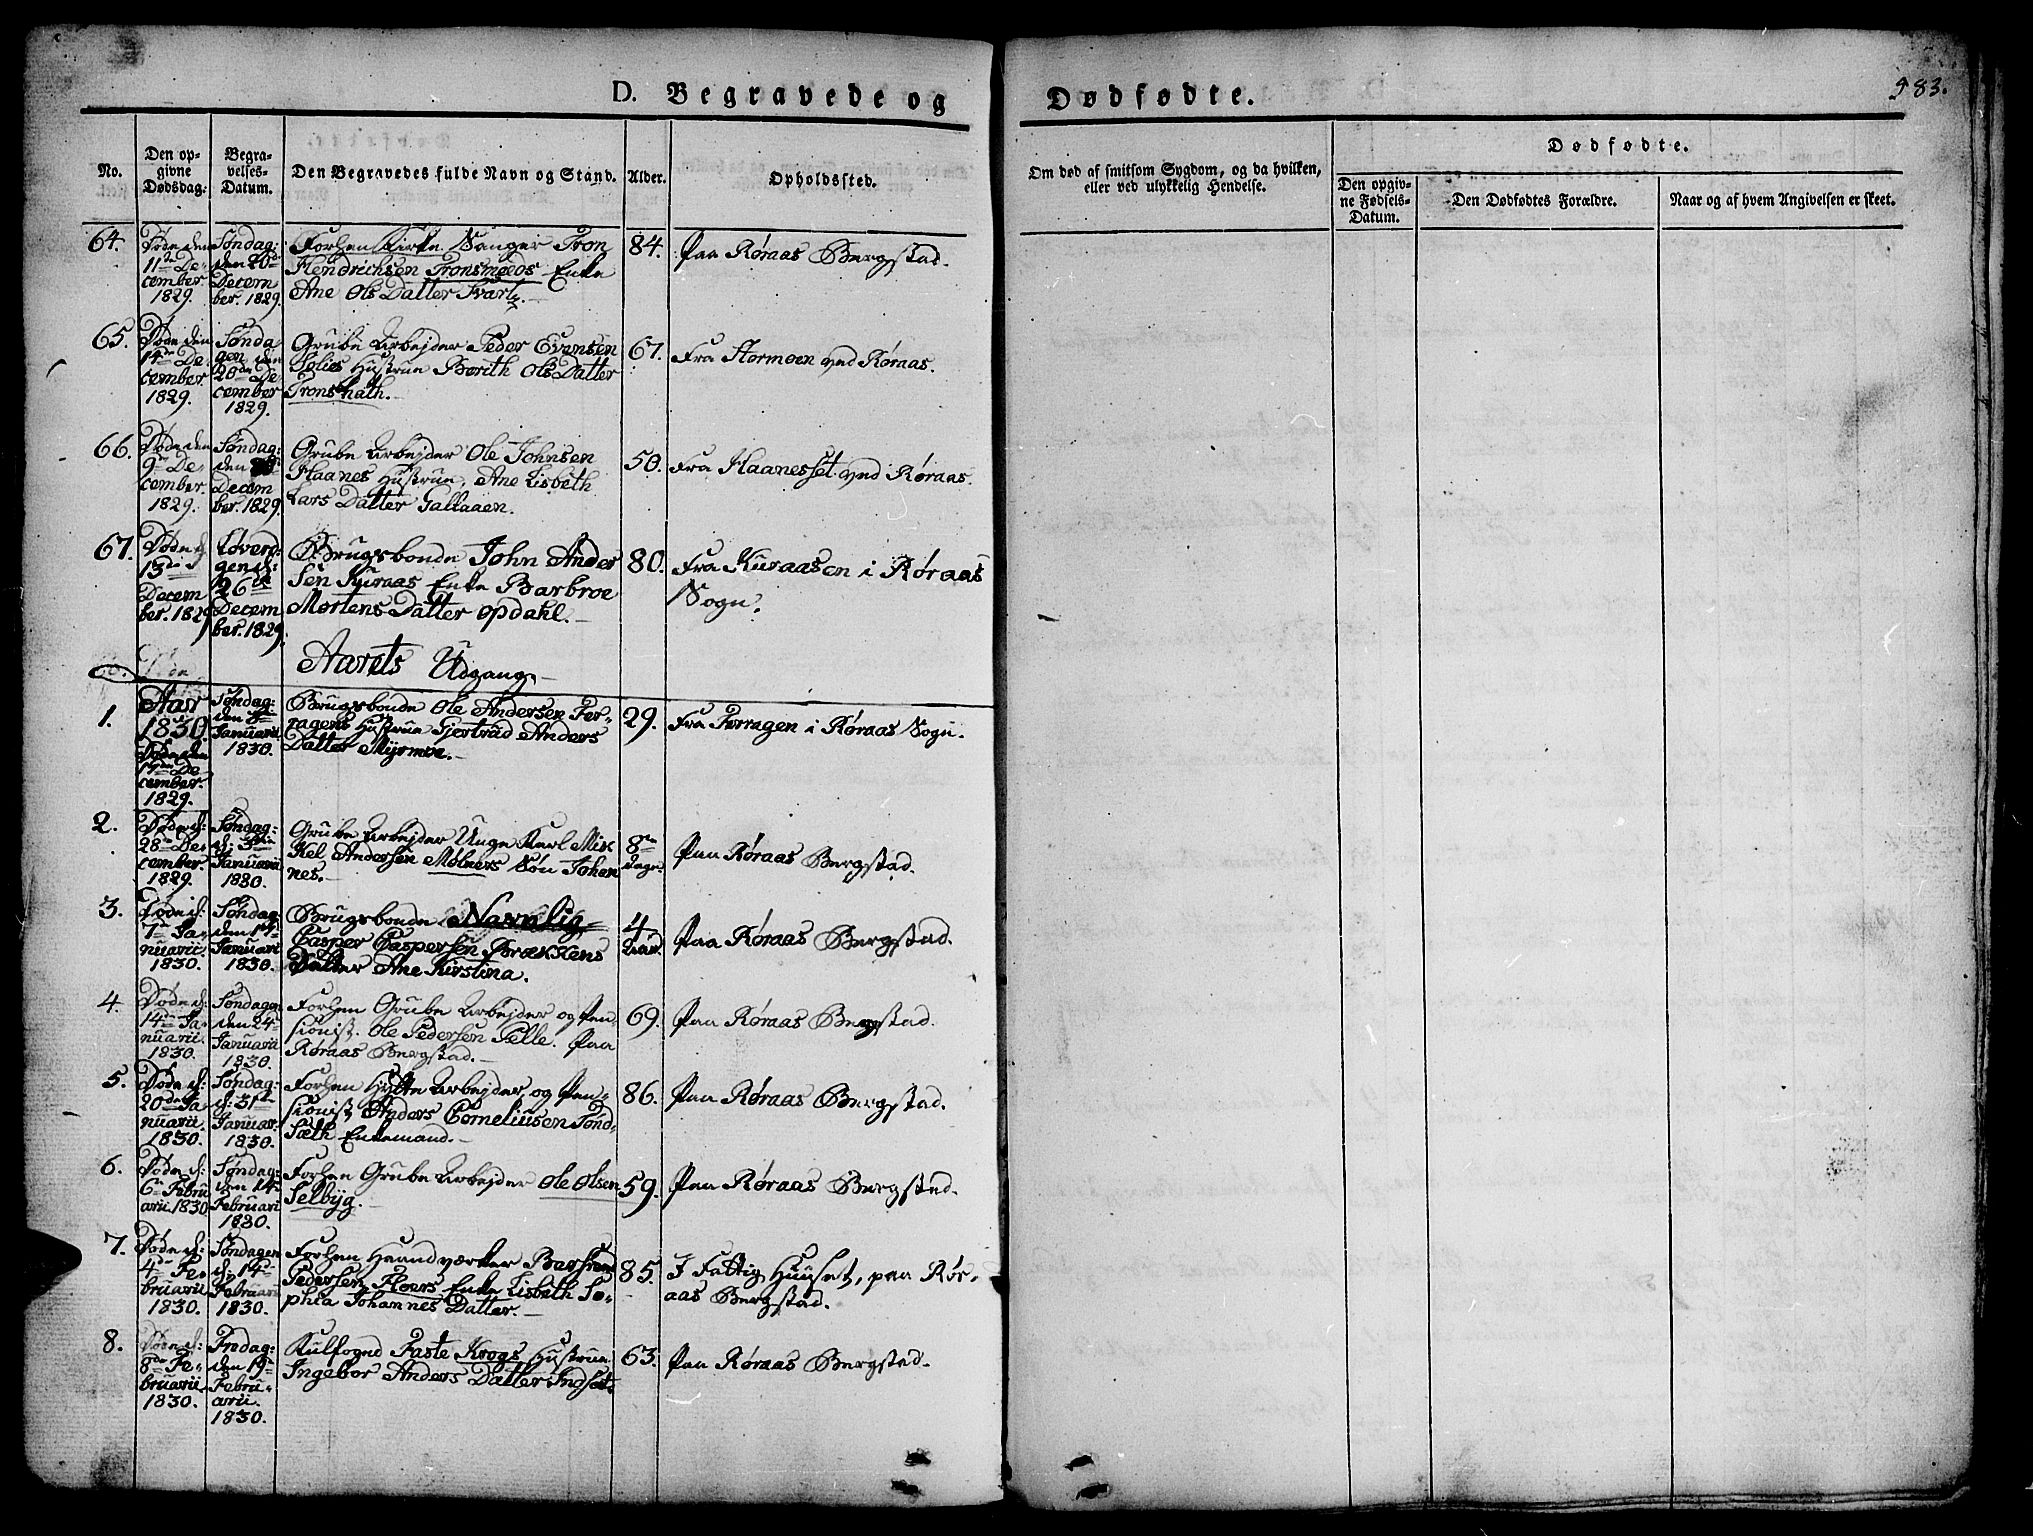 D. Begravede og
Dødfødte.
983.
No.
Den op-
givne
Dødsdag:
Begra-
velses-
Datum.
Den Begravedes fulde Navn og Stand.
Alder.
Opholdssted.
Om død af smitsom Sygdom, og da hvilken,
eller ved ulykkelig Hendelse.
Dødfødte.
Den opgiv-
ne Fødsels-
Datum.
Den Dødfødtes Forældre.
Naar og af hvem Angivelsen er skeet.
64.
Døde den
11te De-
cember
1829.
Søndag:
den 20de
Decem
ber. 1829.
Forhen Kirke Sanger Tron
Hendrichsen Tronsmoeds Enke
Ane Ols Datter Svart
84.
Paa Røraas Bergstad.
65.
Døde den
14de De-
cember
1829.
Sønda
gen den
20de De
cember
1829.
Grube Arbejder Peder Evensen
Hustrue Berith Ols Datter
Tronshath.
67.
Fra Stormoen ved Røraas.
66.
Døde den
9de De-
cember.
1829.
Søndag:
den
Decem
ber. 1829.
Grube Arbejder Ole Johnsen
Haanes Hustrue, Ane Lisbeth
Lars Datter Tallaaen.
50.
Fra Haanesset ved Røraas.
67.
Døde d:
13de
Decem
ber. 1829
Løverd:
gen d:
26de
Decem
ber. 1829.
Brugsbonde John Ander
sen Kuraas Enke Barbroe
Mortens Datter Opdahl.
80.
Fra Kuraasen i Røraas
Sogn.
Aarets Udgang
1.
Aar
1830
Døde den
17de De-
cember.
1829.
Søndag:
den 3de
Januarii
1830.
Brugsbonde Ole Andersen Fer-
ragens Hustrue Gjertrud Anders
Datter Myrmoe.
29.
Fra Ferragen i Røraas Sogn.
2.
Døde d:
28de De-
cember.
1829.
Søndag:
d: 3die
Januarii
1830.
Grube Arbejder Unge Karl Mik
kel Andersen Mølners Søn Johan
nes.
8te
Dage.
Paa Røraas Bergstad.
3.
Døde d:
7de Ja-
nuarii.
1830.
Søndag
den 17de
Januarii
1830.
Brugsbonde Navnlig
Casper Caspersen Brækkens
Datter Ane Kirstina.
4
Aar.
Paa Røraas Bergstad.
4.
Døde d:
14de Ja-
nuarii.
1830.
Søndagen
den 24de
Januarii
1830.
Forhen Grube Arbejder og Pen
sionist. Ole Pedersen Pelle. Paa
Røraas Bergstad.
69.
Paa Røraas Bergstad.
5.
Døde d:
20de Ja-
nuarii.
1830.
Søndag:
d: 31te
Januar.
1830.
Forhen Hytte Arbejder, og Pen-
sionist Anders Corneliusen Tønd-
sæth Enkemand.
86.
Paa Røraas Bergstad.
6.
Døde d:
6te Febru
arii. 1830
Søndag:
den 14de
Februarii
1830.
Forhen Grube Arbejder Ole Olsen
Selbyg.
59.
Paa Røraas Bergstad.
7.
Døde d:
4de Fe-
bruarii
1830.
Søndagen
d: 14de
Februarii
1830.
Forhen Haandværker
Pedersen Floers Enke Lisbeth So-
phia Johannes Datter.
85.
I Fattig Huuset, paa Rør-
aas Bergstad.
8.
Døde d:
8de Fe-
bruarii.
1830.
Fredag:
den 19de
Febru-
arii.
1830.
Kulfoged Faste Krogs Hustrue
Ingebor Anders Datter Indset.
63.
Paa Røraas Bergstad.